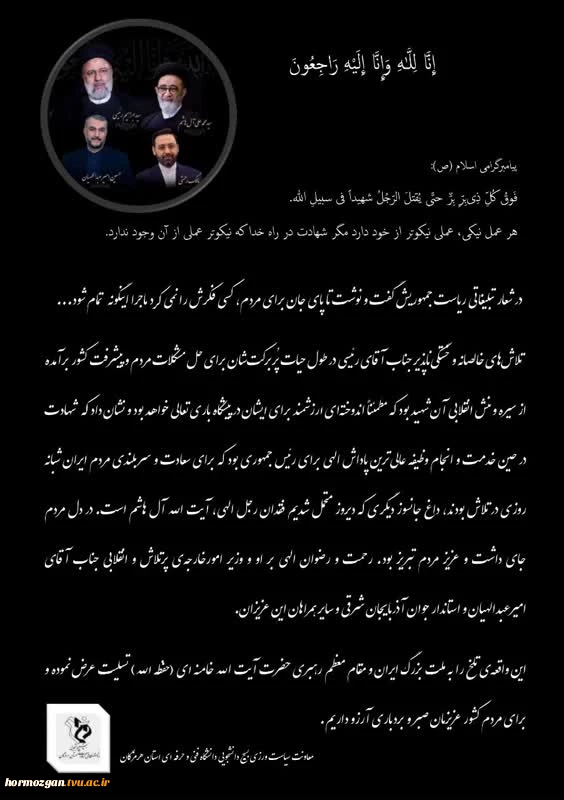 إِنَّا لِلَّهِ وَإِنَّا إِلَيْهِ رَاجِعُونَ
سید ابراهیم رئیسی
سید محمد علی آل هاشم
حسین امیرعبداللهیان
مالک رحمتی
پیامبرگرامی اسلام (ص):
فَوقَ كُلِّ ذِی‌بِرّ بِرٌّ حتّی یُقتَلَ الرّجُلُ شَهیداً فی سبیلِ الله.
هر عمل نیکی، عملی نیکوتر از خود دارد مگر شهادت در راه خدا که نیکوتر عملی از آن وجود ندارد.
در شعار تبلیغاتی ریاست جمهوریش گفت و نوشت تا پای جان برای مردم، کسی فکرش را نمی کرد ماجرا اینگونه تمام شود...
تلاش‌های خالصانه و خستگی‌ناپذیر جناب آقای رئیسی در طول حیات پُربرکت‌شان برای حل مشکلات مردم و پیشرفت کشور برآمده
از سیره و منش انقلابی آن شهید بود که مطمئناً اندوخته‌ای ارزشمند برای ایشان در پیشگاه باری تعالی خواهد بود و نشان داد که شهادت
در حین خدمت و انجام وظیفه عالی‌ترین پاداش الهی برای رئیس جمهوری بود که برای سعادت و سربلندی مردم ایران شبانه
روزی در تلاش بودند، داغ جانسوز دیگری که دیروز متحمل شدیم فقدان رجل الهی، آیت الله آل هاشم است. در دل مردم
جای داشت و عزیز مردم تبریز بود. رحمت و رضوان الهی بر او و وزیر امورخارجه‌ی پرتلاش و انقلابی جناب آقای
امیرعبدالهیان و استاندار جوان آذربایجان شرقی و سایر همراهان این عزیزان.
این واقعه‌ی تلخ را به ملت بزرگ ایران و مقام معظم رهبری حضرت آیت الله خامنه ای (حفظه الله) تسلیت عرض نموده و
برای مردم کشور عزیزمان صبر و بردباری آرزو داریم.
معاونت سیاست ورزی بسیج دانشجویی دانشگاه فنی و حرفه ای استان هرمزگان
hormozgan.tvu.ac.ir